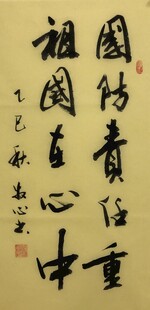 國防責任重
祖國在心中
乙巳秋 安心书